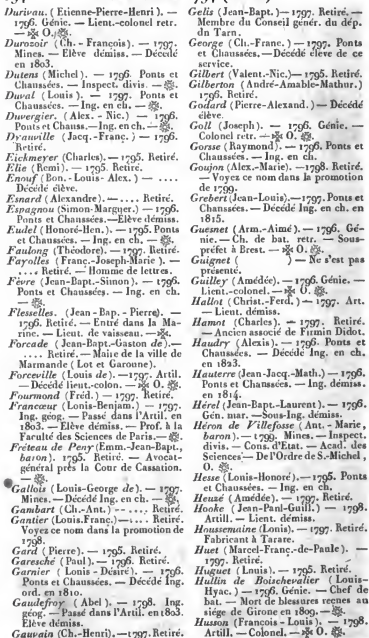 Durivau. (Etienne-Pierre-Henri). —
1796. Génie. — Lient.-colonel retr.
— ✠ O.
Durozoir (Ch.-François). — 1797.
Mines. — Elève démiss. — Décédé
en 1803.
Dutens (Michel). — 1796. Ponts et
Chaussées. — Inspect. divis. —
Duval (Louis). — 1797. Ponts et
Chaussées. — Ing. en ch. —
Duvergier. (Alex. - Nic.) — 1796.
Ponts et Chauss.—Ing. en ch. —
Dyauville (Jacq.-Franç.) — 1796.
Retiré.
Eickmeyer (Charles).— 1795. Retiré.
Elie (Remi). — 1795. Retiré.
Enouf (Bon.-Louis-Alex.) — ....
Décédé élève.
Esnard (Alexandre). — .... Retiré.
Espagnou (Simon-Marguer.) — 1796.
Ponts et Chaussées.—Elève démiss.
Eudel (Honoré-Hen.). — 1795. Ponts
et Chaussées. — Ing. en ch. —
Faulong (Théodore). — 1797. Retiré.
Fayolles (Franc.-Joseph-Marie). —
.... Retiré. — Homme de lettres.
Fèvre (Jean-Bapt.-Simon). — 1796.
Ponts et Chaussées. — Ing. en ch.
—
Flesselles. (Jean-Bap.-Pierre). —
1796. Retiré. — Entré dans la Ma-
rine. — Lient. de vaisseau. —
Forcade (Jean-Bapt.-Gaston de).—
.... Retiré. — Maire de la ville de
Marmande (Lot et Garonne).
Forceville (Louis de). — 1797. Artil.
— Décédé lieut.-colon. — ✠ O.
Fourmond (Fréd.) — 1797. Retiré.
Francœur (Louis-Benjam.) — 1797.
Ing. géog. — Passé dans l'Artil. en
1803. — Elève démiss. — Prof. à la
Faculté des Sciences de Paris.—
Fréteau de Peny (Emm.-Jean-Bapt.,
baron). 1795. Retiré. — Avocat-
général près la Cour de Cassation.
—
Gallois (Louis-George de). — 1797.
Mines.— Décédé Ing. en ch. —
Gambart (Ch.-Ant.) —.... Retiré.
Gantier (Louis.Franç.)—.... Retiré.
Voyez ce nom dans la promotion de
1798.
Gard (Pierre). — 1795. Retiré.
Garesché (Paul). — 1796. Retiré.
Garnier (Louis - Désiré). — 1796.
Ponts et Chaussées. — Décédé Ing.
ord. en 1810.
Gaudefroy (Abel). — 1798. Ing.
géog. — Passé dans l'Artil. en 1803.
Elève démiss.
Gauvain (Ch.-Henri).—1797.Retiré.
Gelis (Jean-Bapt.)— 1797. Retiré.—
Membre du Conseil génér. du dép.
du Tarn.
George (Ch.-Franc.) — 1797. Ponts
et Chaussées.—Décédé élève de ce
service.
Gilbert (Valent.-Nic.)— 1795. Retiré.
Gilberton (André-Amable-Mathur.)
1796. Retiré.
Godard (Pierre-Alexand.) — Décédé
élève.
Goll (Joseph). — 1796. Génie. —
Colonel retr. —✠ O.
Gorsse (Raymond). — 1796. Ponts et
Chaussées. — Ing. en ch.
Goujon (Alex.-Marie). —1798. Retiré.
— Voyez ce nom dans la promotion
de 1799.
Grebert (Jean-Louis).—1797. Ponts et
Chaussées. — Décédé Ing. en ch. en
1815.
Guesnet (Arm.-Aimé). — 1796. Gé-
nie. — Ch. de bat. retr. — Sous-
préfet à Brest. — ✠ O.
Guignet ( ) — Ne s'est pas
présenté.
Guilley (Amédée). — 1796. Génie. —
Lient.-colonel. — ✠ O.
Hallot (Christ.-Ferd.) — 1797. Art.
— Lient. démiss.
Hamot (Charles). — 1797. Retiré.
— Ancien associé de Firmin Didot.
Haudry (Alexis). — 1796. Ponts et
Chaussées. — Décédé Ing. en ch.
en 1823.
Hauterre (Jean-Jacq.-Math.) — 1796.
Ponts et Chaussées. — Ing. démiss.
en 1814.
Hérel (Jean-Bapt.-Laurent). — 1796.
Gén. mar. —Sous-Ing. démiss.
Héron de Villefosse (Ant.-Marie,
baron). — 1799. Mines. — Inspect.
divis. — Cons. d'Etat. — Acad. des
Sciences — De l'Ordre de S.-Michel,
O.
Hesse (Louis-Honoré). — 1795. Ponts
et Chaussées. — Ing. en ch.
Heuzé (Amédée). — 1797. Retiré.
Hooke (Jean-Paul-Guill.) — 1798.
Artill. — Lient. démiss.
Houssemaine (Louis). — 1797. Retiré.
Fabricant à Tarare.
Huet (Marcel-Franç.-de-Paule). —
1797. Retiré.
Huguet (Louis). — 1795. Retiré.
Hullin de Boischevalier (Louis-
Hyac.) — 1796. Génie. — Chef de
bat. — Mort de blessures reçues au
siége de Girone en 1809.—
Husson (François - Louis). — 1798.
Artill. — Colonel. — ✠